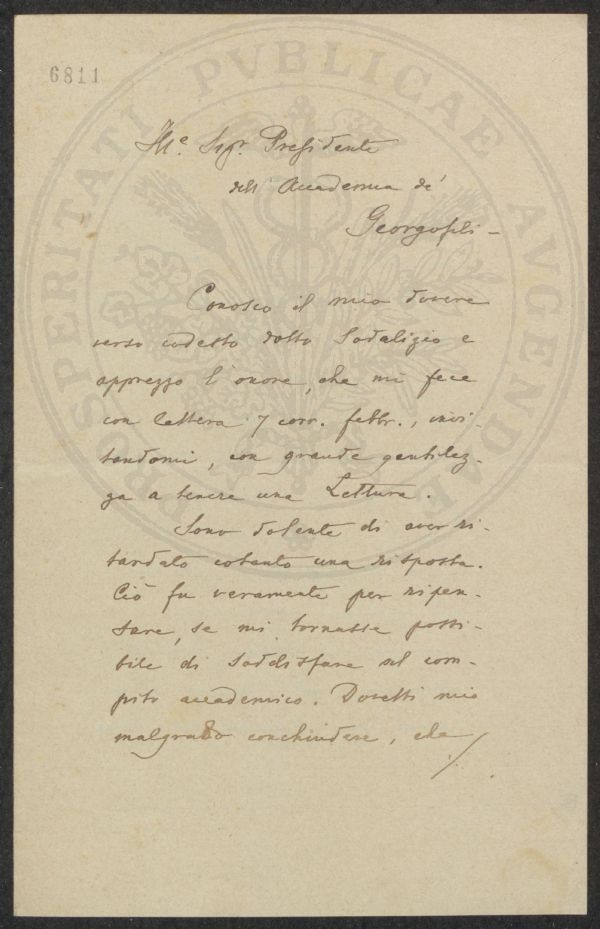 6811
PROSPERITATI PVBLICAE AVGENDAE
Ill.e Sigr. Presidente
dell' Accademia de'
Georgofili -
Conosco il mio dovere
verso codesto dotto Sodalizio e
apprezzo l'onore, che mi fece
con lettera 7 corr. febbr., invi-
tandomi, con grande gentilez-
za a tenere una Lettura.
Sono dolente di aver ri-
tardato cotanto una risposta.
Ciò fu veramente per ripen-
sare, se mi tornasse possi-
bile di soddisfare al com-
pito accademico. Dovetti mio
malgrado conchiudere, che
./.